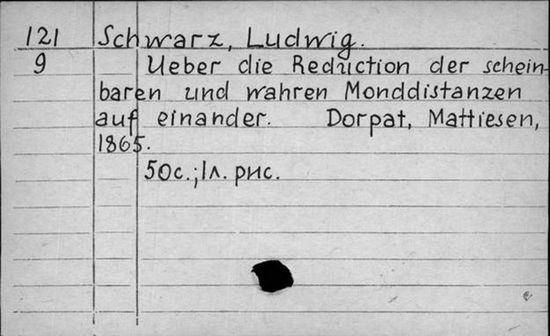 121 Schwarz, Ludwig.
9 Ueber die Reduction der schein-
baren und wahren Monddistanzen
auf einander. Dorpat, Mattiesen,
1865.
50с.; 1л. рис.